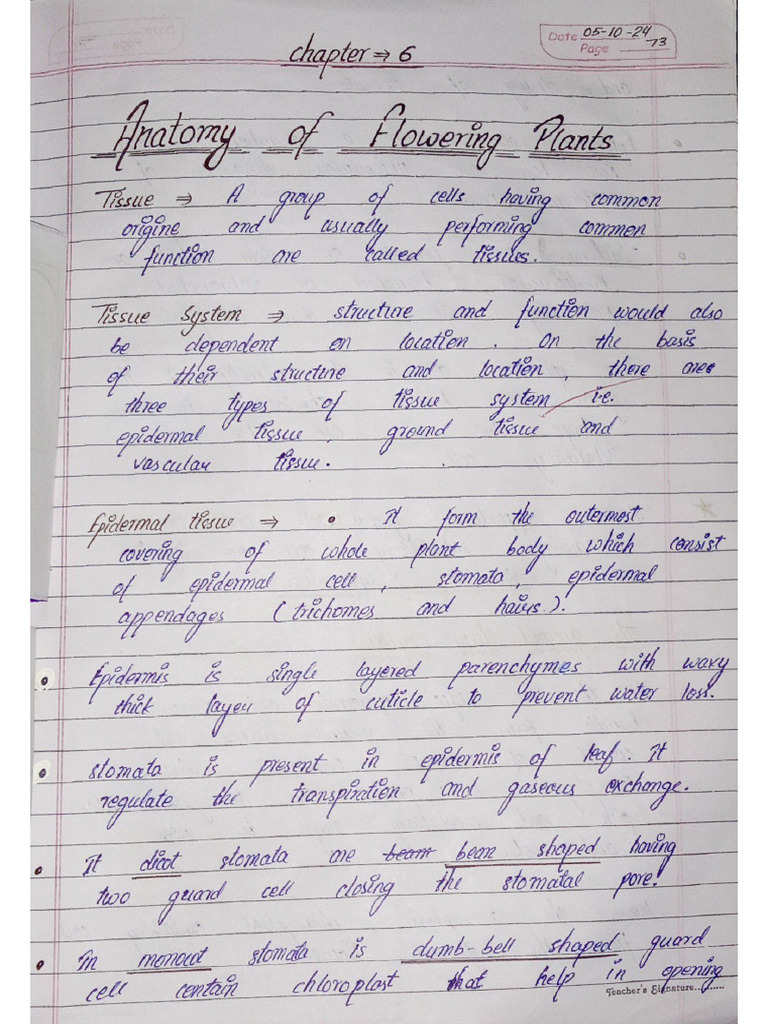 Date 05-10-24
Page 73
chapter ⇒ 6
Anatomy of Flowering Plants
Tissue ⇒ A group of cells having common
origine and usually performing common
function are called tissues.
Tissue System ⇒ structure and function would also
be dependent on location. On the basis
of their structure and location, there are
three types of tissue system i.e.
epidermal tissue, ground tissue and
vascular tissue.
Epidermal tissue ⇒ • It form the outermost
covering of whole plant body which consist
of epidermal cell, stomata, epidermal
appendages (trichomes and hairs).
• Epidermis is single layered parenchymes with wavy
thick layer of cuticle to prevent water loss.
• stomata is present in epidermis of leaf. It
regulate the transpiration and gaseous exchange.
• It dicot stomata are beam bean shaped having
two guard cell closing the stomatal pore.
• In monocot stomata is dumb-bell shaped guard
cell contain chloroplast that help in opening
Teacher's Signature..........